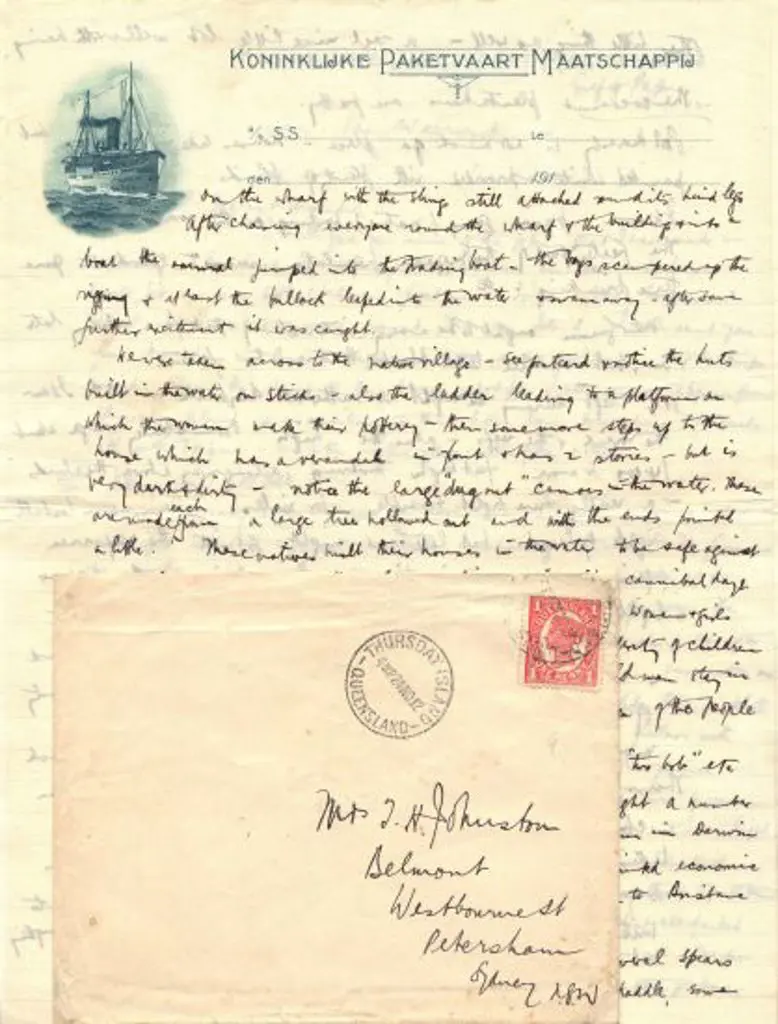 KONINKLIJKE PAKETVAART MAATSCHAPPIJ
a/b S.S. te
den 191
on the wharf with the sling still attached round its hind legs
After chasing everyone round the wharf & the buildings into a
boat the animal jumped into the trading boat - the boys scampered up the
rigging & at last the bullock leaped into the water & swam away - after some
further excitement it was caught.
We were taken across to the native village - see postcard & notice the huts
built in the water on sticks - also the ladder leading to a platform on
which the women make their pottery - then some more steps up to the
house which has a verandah in front & has 2 stories - but is
very dark & dirty - notice the large "dug out" canoes in the water. These
are made each from a large tree hollowed out and with the ends pointed
a little. These natives built their houses in the water to be safe against
cannibal days
Women & girls
plenty of children
old men stay in
of the people
"two bob" etc
bought a number
in Darwin
economic
to Brisbane
several spears
paddle, some
THURSDAY ISLAND
QUEENSLAND
Mrs T. H. Johnston
Belmont
Westbourne St
Petersham
Sydney NSW